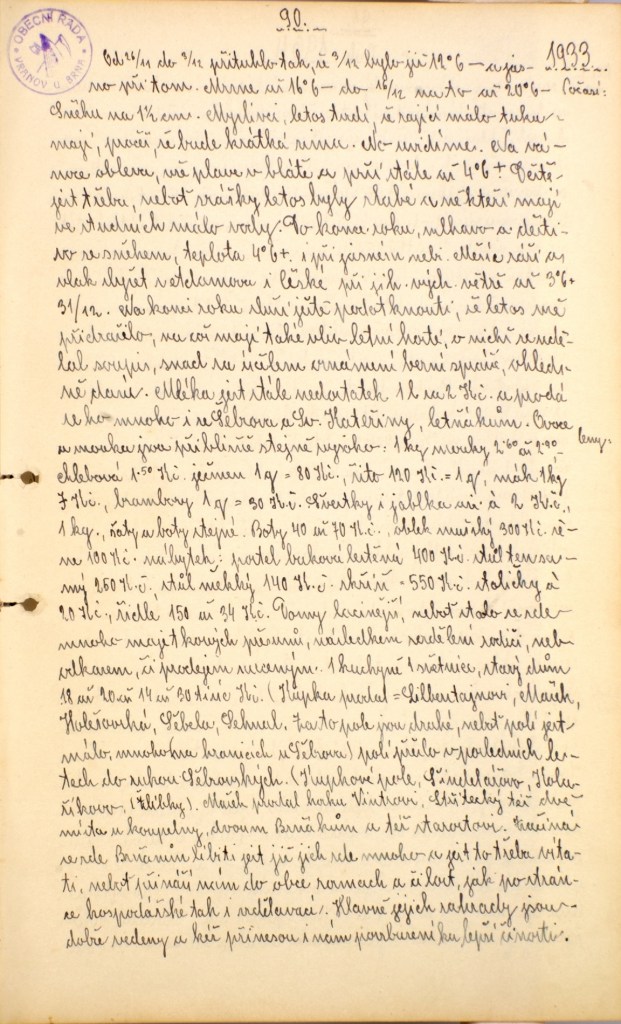 90.
OBECNÍ RADA
VRANOV U BRNA
1933
Od 26/11 do 3/12 přituhlo tak, že 3/12 bylo již 12°6 – a jas-
no při tom. Mrzne až 16°6 – do 16/12 na to až 20°6 –
Počasí:
Sněhu na 1½ cm. Myslivci, letos tvrdí, že zajíci málo tuku
mají, pročež, že bude krátká zima. No uvidíme. Na vá-
noce obleva, vše plave v blátě a prší stále až 4°6 +. Deště
jest třeba, neboť srážky letos byly slabé a někteří mají
ve studních málo vody. Do konce roku, mlhavo a dešti-
vo se sněhem, teplota 4°6+. i při jasném nebi. Měsíc září as
vlak slyšet z Adamova i České při jih. vých. větrě až 3°6+
31/12. Na konci roku sluší ještě podotknouti, že letos vše
přidražilo, na což mají také vliv letní hosté, o nichž se udě-
lal soupis, snad za účelem oznámení berní správě, ohled-
ně daní. Mléka jest stále nedostatek 1 l za 2 Kč. a prodá
se ho mnoho i ze Šebrova a Sv. Kateřiny, letňákům. Ovoce
ceny:
a mouka jsou přibližně stejně vysoko: 1 kg mouky 2.60 až 2.90,
chlebová 1.50 Kč. ječmen 1 q = 80 Kč., žito 120 Kč. = 1 q, mák 1 kg
7 Kč., brambory 1 q = 30 Kč. Švestky i jablka asi à 2 Kč.,
1 kg., šaty a boty stejné. Boty 40 až 70 Kč., oblek mužský 300 Kč. že-
ne 100 Kč. nábytek: postel buková leštěná 400 Kč. stůl ten sa-
mý 250 Kč., stůl měkký 140 Kč. skříň = 550 Kč. stoličky á
20 Kč., židle 150 až 34 Kč. Domy lacinější, neboť stalo se zde
mnoho majetkových přesunů, následkem rozdělení rodičů, neb
odkazem, či prodejem nuceným. 1 kuchyně 1 světnice, starý dům
18 až 20 až 14 až 30 tisíc Kč. (Kupka prodal = Silbertajnovi, Mašek,
Holešovská, Šebela, Sehnal. Za to pole jsou drahé, neboť polí jest
málo, mnoho (na hranicích u Šebrova) polí přešlo v posledních le-
tech do rukou Šebrovských. (Kupkové pole, Šindelářovo, Kola-
říkovo, (Žlíbky). Mašek prodal horku Vintrovi, Střítecký též dvě
místa u koupelny, dvoum Brňákům a též starostovi. Začíná
se zde Brňanům líbiti jest již jich zde mnoho a jest to třeba víta-
ti, neboť přináší nám do obce rozmach a čilost, jak po strán-
ce hospodářské tak i vzdělávací. Hlavně jejich zahrady jsou
dobře vedeny a kéž přinesou i nám povzbuzení ku lepší činosti.